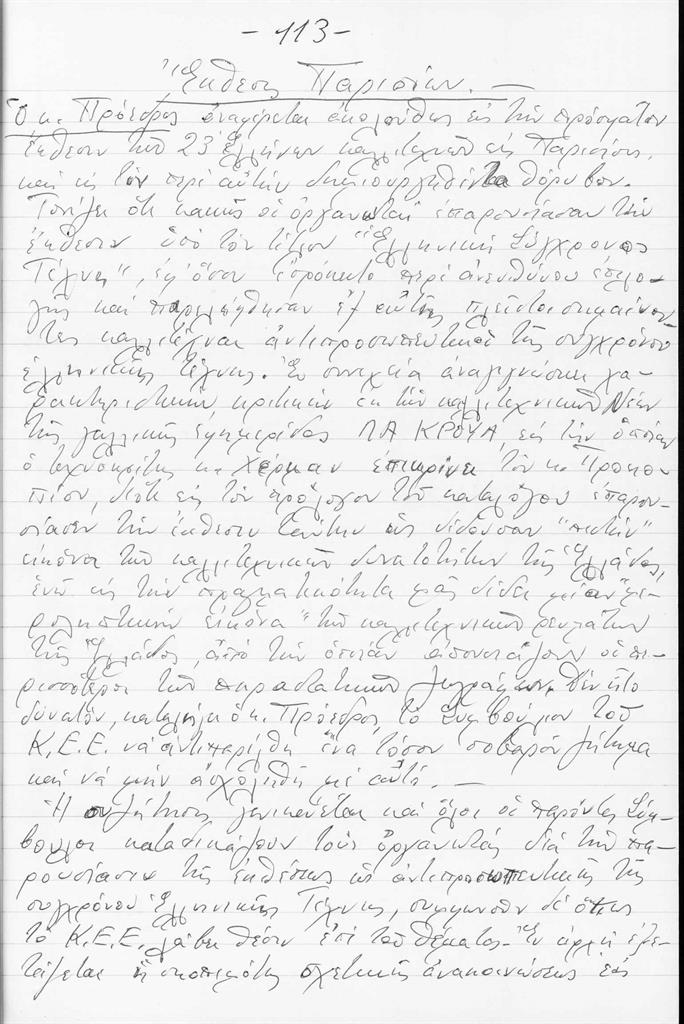 - 113 -
Ἔκθεσις Παρισίων. —
Ὁ κ. Πρόεδρος ἀναφέρεται ἀκολούθως εἰς τὴν πρόσφατον
ἔκθεσιν τῶν 23 Ἑλλήνων καλλιτεχνῶν εἰς Παρισίους,
καὶ εἰς τὸν περὶ αὐτὴν δημιουργηθέντα θόρυβον.
Τονίζει ὅτι κακῶς οἱ ὀργανωταὶ ἐπαρουσίασαν τὴν
ἔκθεσιν ὑπὸ τὸν τίτλον "Ἑλληνικὴ Σύγχρονος
Τέχνη", ἐφ' ὅσον ἐπρόκειτο περὶ ἀνευθύνου ἐπιλο-
γῆς καὶ παρελείφθησαν ἐξ αὐτῆς πλεῖστοι σημαίνον-
τες καλλιτέχναι ἀντιπροσωπευτικοὶ τῆς συγχρόνου
ἑλληνικῆς τέχνης. Ἐν συνεχείᾳ ἀναγιγνώσκει χα-
ρακτηριστικὴν κριτικὴν ἐκ τῶν καλλιτεχνικῶν Νέων
τῆς γαλλικῆς ἐφημερίδος ΛΑ ΚΡΟΥΑ, εἰς τὴν ὁποίαν
ὁ τεχνοκρίτης κ. Χέρμαν ἐπικρίνει τὸν κ. Προκο-
πίου, διότι εἰς τὸν πρόλογον τοῦ καταλόγου ἐπαρου-
σίασεν τὴν ἔκθεσιν ταύτην ὡς δίδουσαν "πιστὴν"
εἰκόνα τῶν καλλιτεχνικῶν δυνατοτήτων τῆς Ἑλλάδος,
ἐνῶ εἰς τὴν πραγματικότητα μᾶς δίδει μίαν "με-
ροληπτικὴν εἰκόνα" τῶν καλλιτεχνικῶν ρευμάτων
τῆς Ἑλλάδος, ἀπὸ τὴν ὁποίαν ἀπουσιάζουν οἱ πε-
ρισσότεροι τῶν παραστατικῶν ζωγράφων. Δὲν ἦτο
δυνατόν, καταλήγει ὁ κ. Πρόεδρος, τὸ Συμβούλιον τοῦ
Κ.Ε.Ε. νὰ ἀντιπαρέλθῃ ἕνα τόσον σοβαρὸν ζήτημα
καὶ νὰ μὴν ἀσχοληθῇ μὲ αὐτό. —
Ἡ συζήτησις γενικεύεται καὶ ὅλοι οἱ παρόντες Σύμ-
βουλοι καταδικάζουν τοὺς ὀργανωτὰς διὰ τὴν πα-
ρουσίασιν τῆς ἐκθέσεως ὡς ἀντιπροσωπευτικῆς τῆς
συγχρόνου Ἑλληνικῆς Τέχνης, συμφωνοῦν δὲ ὅπως
τὸ Κ.Ε.Ε. λάβει θέσιν ἐπὶ τοῦ θέματος. - Ἐν ἀρχῇ ἐξε-
τάζεται ἡ σκοπιμότης σχετικῆς ἀνακοινώσεως εἰς